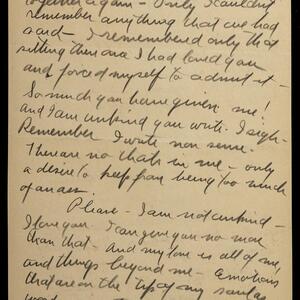 together again - Only I couldn't
remember anything that we had
said - I remembered only that
sitting there and I had loved you
and forced myself to admit it -
So much you have given me!
And I am unkind you write. I sigh -
Remember I write non sense.
There are no thats in me - only
a desire to keep from being too much
of an ass.
Please - I am not unkind -
I love you. I can give you no more
than that - And my love is all of me
and things beyond me - Emotions
that are on the tip of my soul as